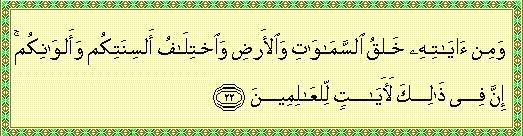 وَمِنْ ءَايَـٰتِهِۦ خَلْقُ ٱلسَّمَـٰوَٰتِ وَٱلْأَرْضِ وَٱخْتِلَـٰفُ أَلْسِنَتِكُمْ وَأَلْوَٰنِكُمْ ۚ
إِنَّ فِى ذَٰلِكَ لَـَٔايَـٰتٍ لِّلْعَـٰلِمِينَ ٢٢